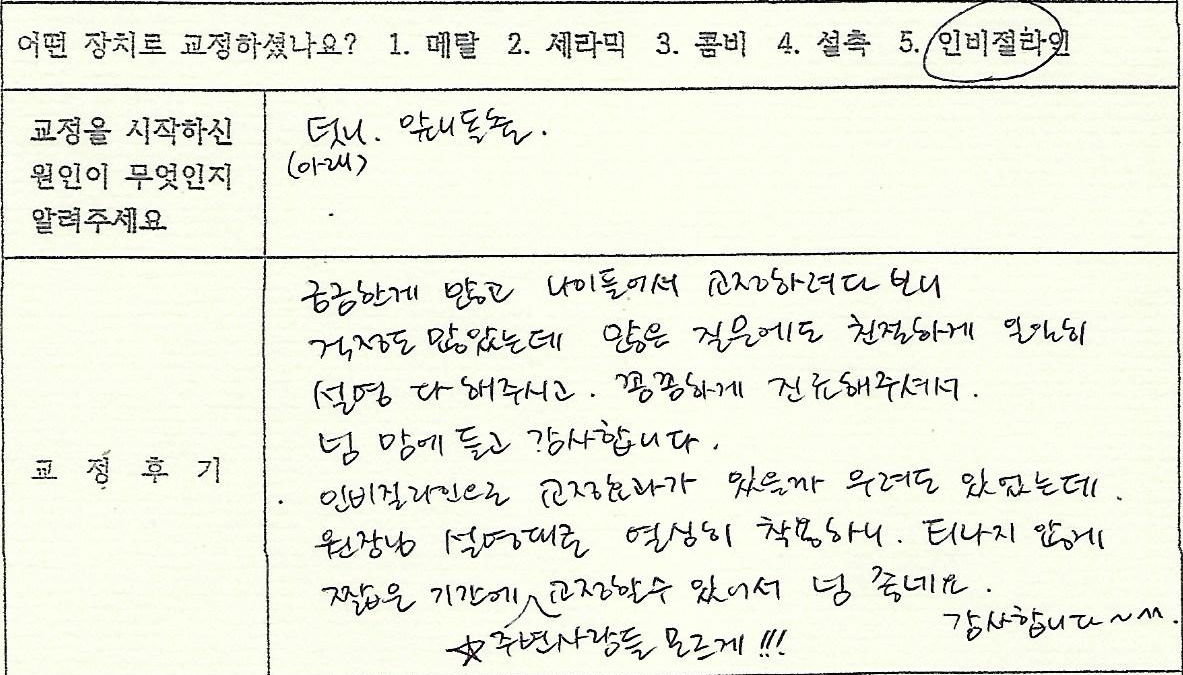 어떤 장치로 교정하셨나요? 1. 메탈 2. 세라믹 3. 콤비 4. 설측 5. 인비절라인
교정을 시작하신
원인이 무엇인지
알려주세요
덧니. 앞니돌출.
(아래)
교 정 후 기
궁금한게 많고 나이들어서 교정하려다 보니
걱정도 많았는데 많은 질문에도 친절하게 일일히
설명 다 해주시고. 꼼꼼하게 진료해주셔서.
넘 맘에 들고 감사합니다.
인비절라인으로 교정효과가 있을까 우려도 있었는데.
원장님 설명대로 열심히 착용하니. 티나지 않게
짧은 기간에 교정할수 있어서 넘 좋네요.
☆주변사람들 모르게 !!!
감사합니다~^^.